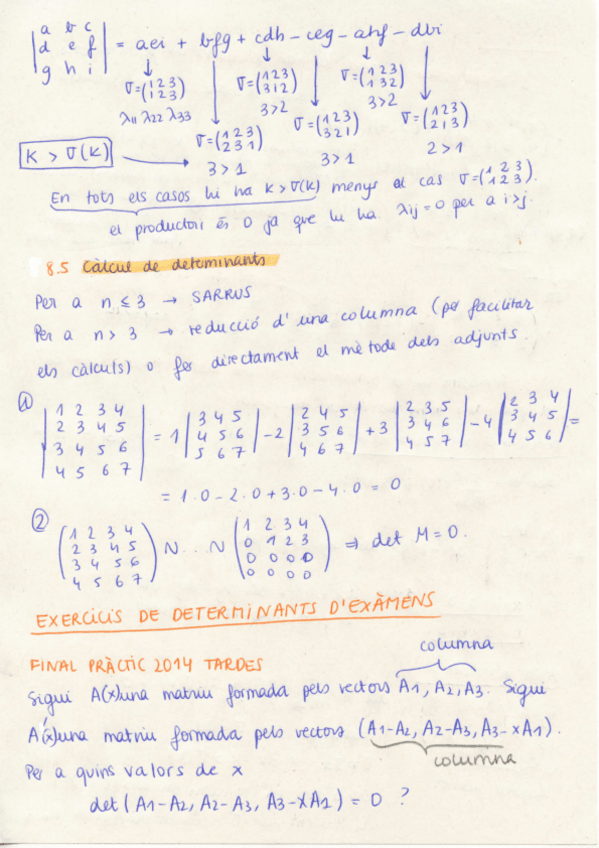 | a b c |
| d e f | = aei + bfg + cdh - ceg - ahf - dbi
| g h i |
σ=(1 2 3 / 1 2 3) σ=(1 2 3 / 3 1 2) σ=(1 2 3 / 1 3 2)
λ11 λ22 λ33 3>2 3>2
σ=(1 2 3 / 2 3 1) σ=(1 2 3 / 3 2 1) σ=(1 2 3 / 2 1 3)
K > σ(K) 3>1 3>1 2>1
En tots els casos hi ha K>σ(K) menys el cas σ=(1 2 3 / 1 2 3).
el productori és 0 ja que hi ha λij=0 per a i>j.
8.5 Càlcul de determinants
Per a n ≤ 3 → SARRUS
Per a n > 3 → reducció d'una columna (per facilitar
els càlculs) o fer directament el mètode dels adjunts.
① | 1 2 3 4 |
| 2 3 4 5 | = 1 | 3 4 5 / 4 5 6 / 5 6 7 | - 2 | 2 4 5 / 3 5 6 / 4 6 7 | + 3 | 2 3 5 / 3 4 6 / 4 5 7 | - 4 | 2 3 4 / 3 4 5 / 4 5 6 | =
| 3 4 5 6 |
| 4 5 6 7 |
= 1·0 - 2·0 + 3·0 - 4·0 = 0
② ( 1 2 3 4 / 2 3 4 5 / 3 4 5 6 / 4 5 6 7 ) N .. N ( 1 2 3 4 / 0 1 2 3 / 0 0 0 0 / 0 0 0 0 ) ⇒ det M = 0.
EXERCICIS DE DETERMINANTS D'EXÀMENS
columna
FINAL PRÀCTIC 2014 TARDES
Sigui A(x) una matriu formada pels vectors A1, A2, A3. Sigui
A'(x) una matriu formada pels vectors (A1-A2, A2-A3, A3-xA1).
columna
Per a quins valors de x
det (A1-A2, A2-A3, A3-xA1) = 0 ?